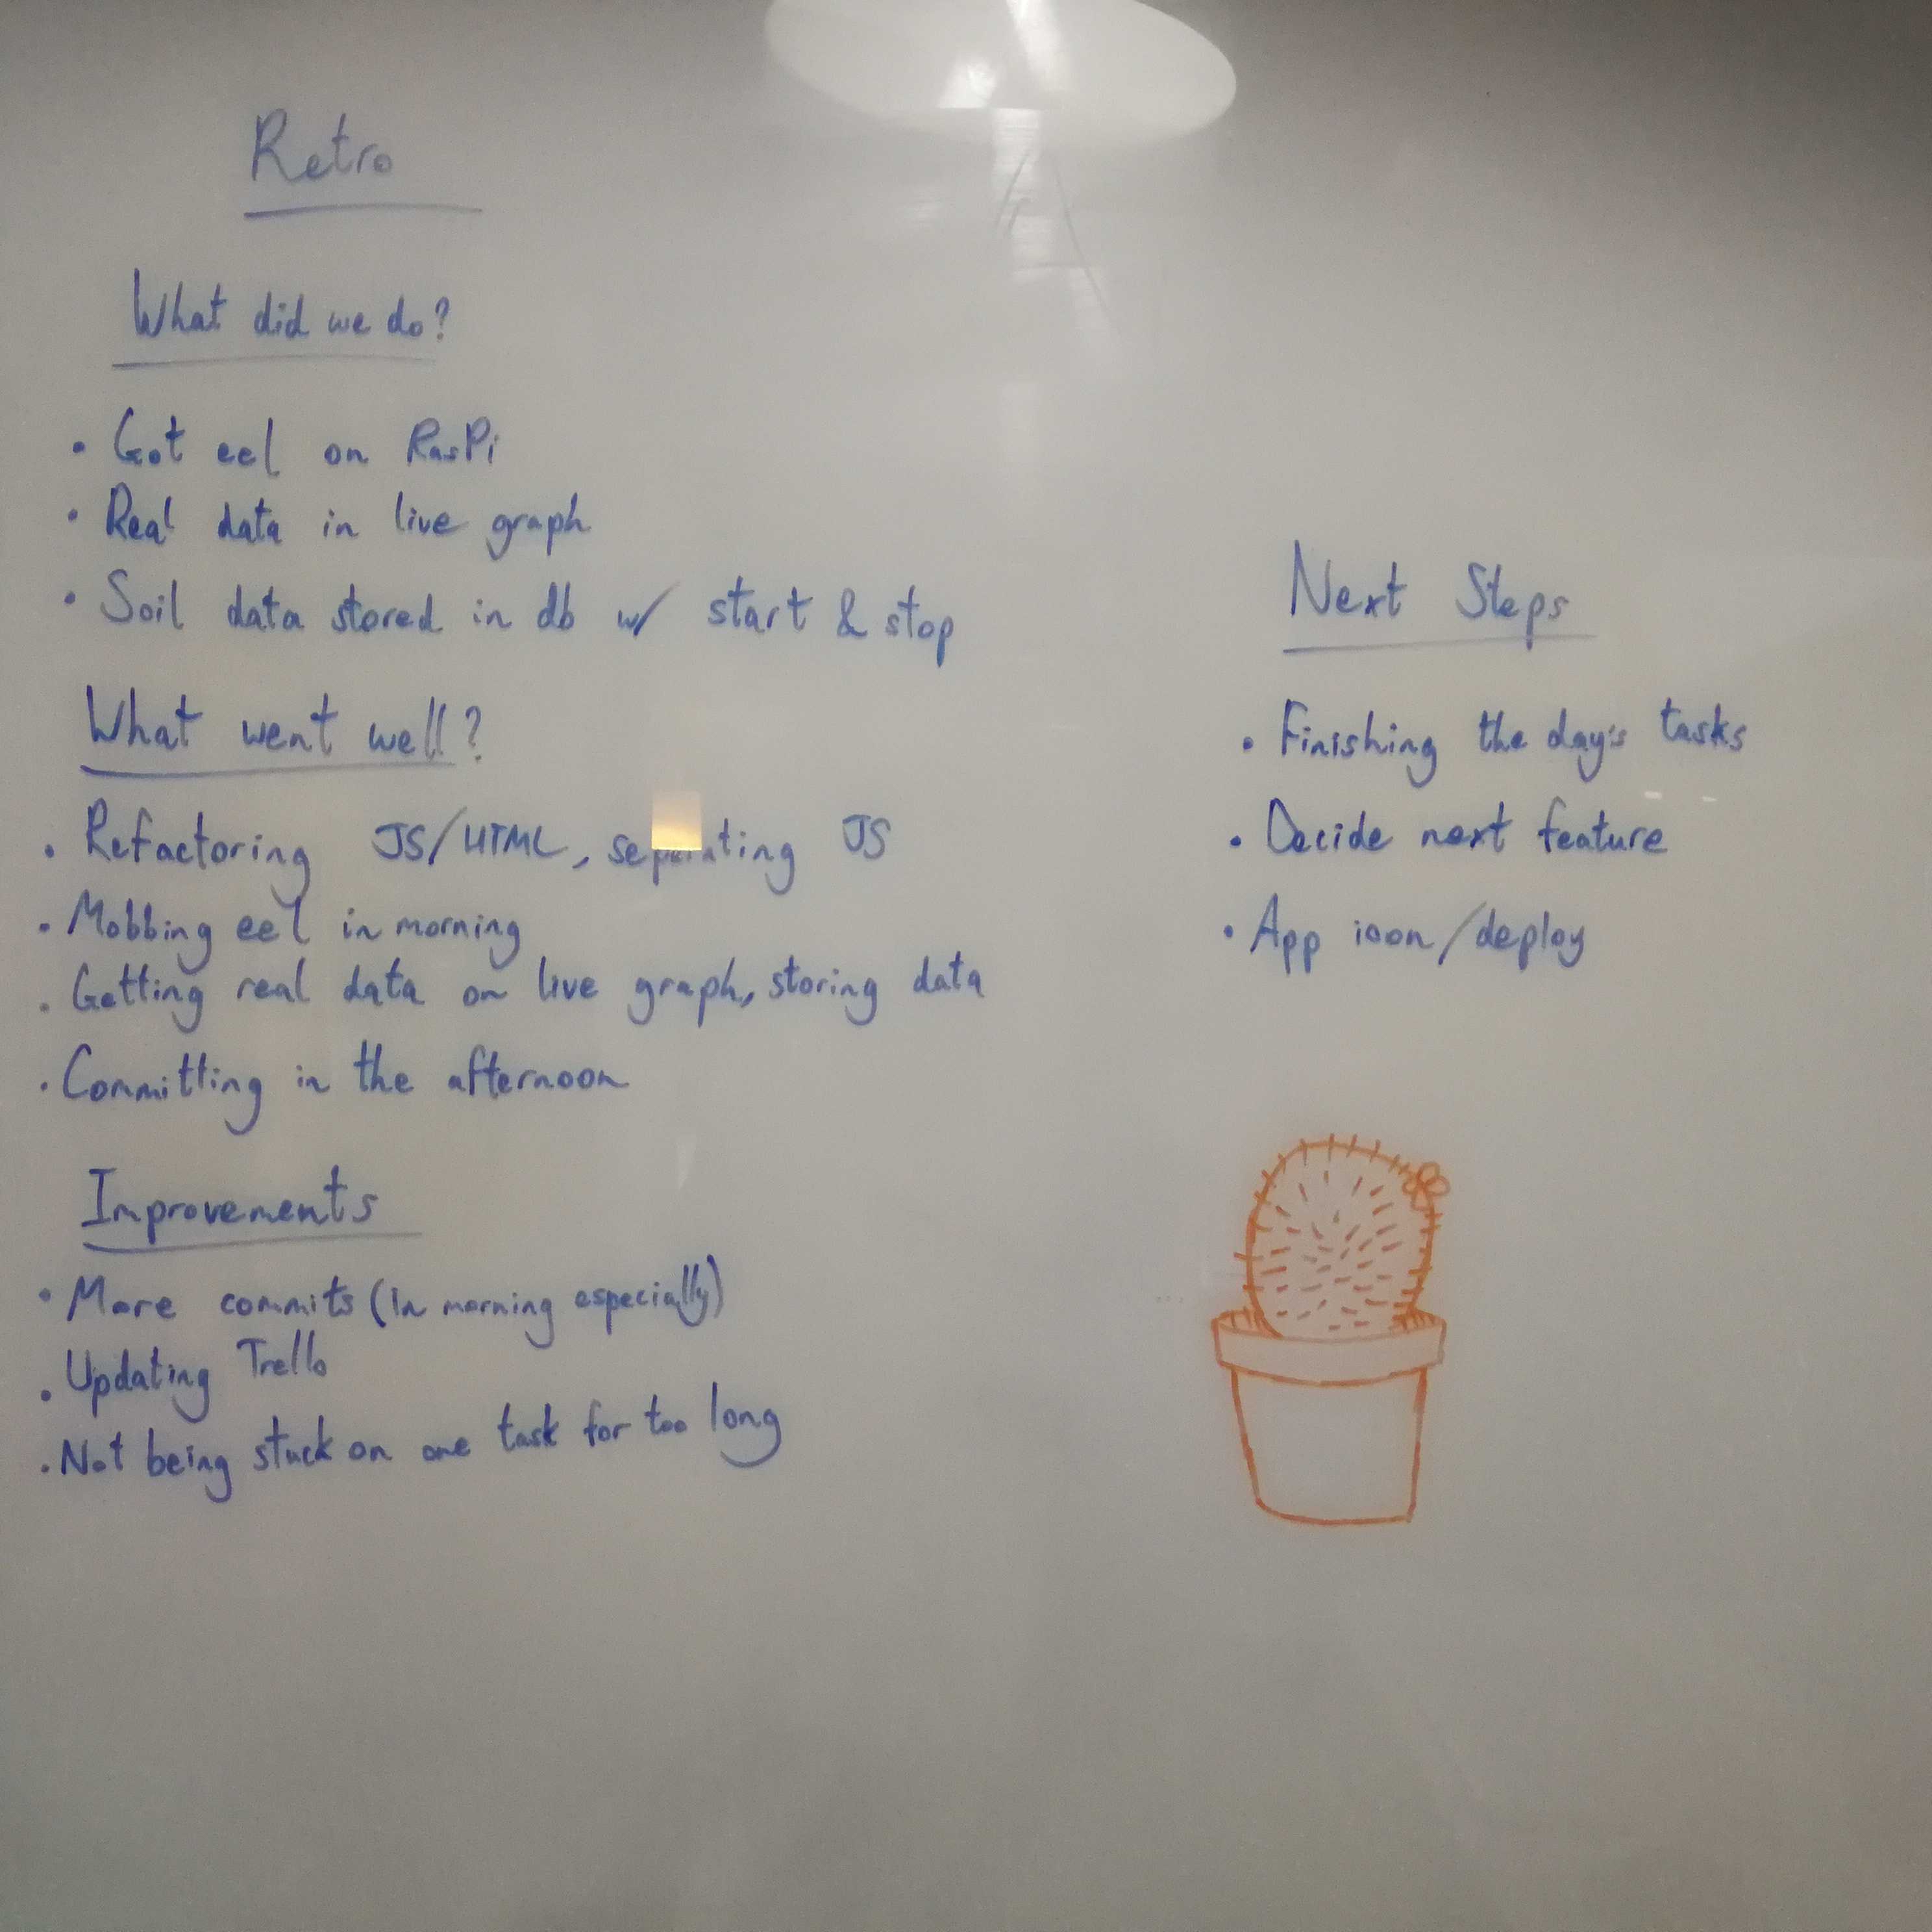 Retro
What did we do?
• Got eel on RasPi
• Real data in live graph
• Soil data stored in db w/ start & stop
What went well?
• Refactoring JS/HTML, separating JS
• Mobbing eel in morning
• Getting real data on live graph, storing data
• Committing in the afternoon
Improvements
• More commits (in morning especially)
• Updating Trello
• Not being stuck on one task for too long
Next Steps
• Finishing the day's tasks
• Decide next feature
• App icon/deploy